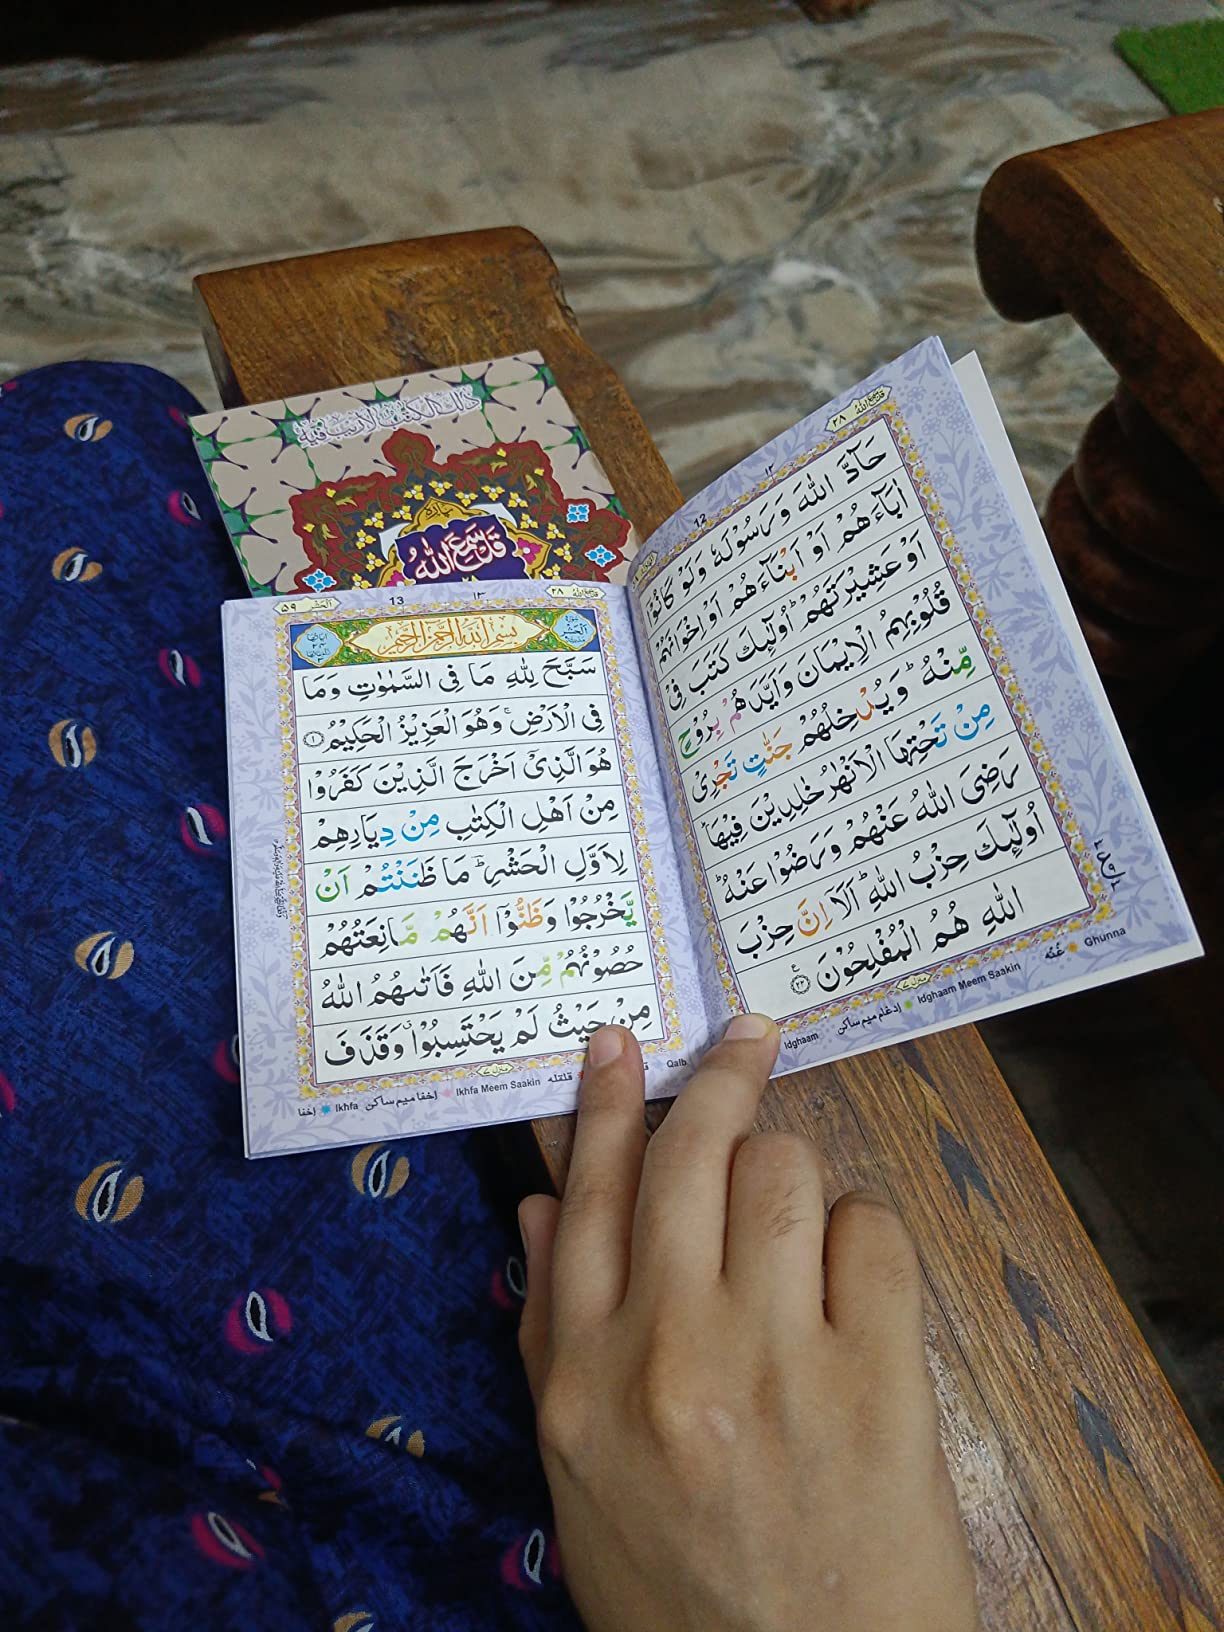 ذٰلِكَ الْكِتٰبُ لَا رَيْبَ فِيْهِ
پارہ
قَدْ سَمِعَ اللّٰهُ
قَدْ سَمِعَ اللّٰهُ ٢٨
١٢
12
حَآدَّ اللّٰهَ وَرَسُوْلَهٗ وَلَوْ كَانُوْٓا
اٰبَآءَهُمْ اَوْ اَبْنَآءَهُمْ اَوْ اِخْوَانَهُمْ
اَوْ عَشِيْرَتَهُمْ ؕ اُولٰٓئِكَ كَتَبَ فِيْ
قُلُوْبِهِمُ الْاِيْمَانَ وَاَيَّدَهُمْ بِرُوْحٍ
مِّنْهُ ؕ وَيُدْخِلُهُمْ جَنّٰتٍ تَجْرِيْ
مِنْ تَحْتِهَا الْاَنْهٰرُ خٰلِدِيْنَ فِيْهَا ؕ
رَضِيَ اللّٰهُ عَنْهُمْ وَرَضُوْا عَنْهُ ؕ
اُولٰٓئِكَ حِزْبُ اللّٰهِ ؕ اَلَاۤ اِنَّ حِزْبَ
اللّٰهِ هُمُ الْمُفْلِحُوْنَ ٢٢
منزل ٧
Idghaam ادغام میم ساکن Idghaam Meem Saakin غُنّه Ghunna
قَدْ سَمِعَ اللّٰهُ ٢٨
١٣
13
اَلْحَشْر ٥٩
بِسْمِ اللّٰهِ الرَّحْمٰنِ الرَّحِيْمِ
سَبَّحَ لِلّٰهِ مَا فِى السَّمٰوٰتِ وَمَا
فِى الْاَرْضِ ۚ وَهُوَ الْعَزِيْزُ الْحَكِيْمُ ١
هُوَ الَّذِيْٓ اَخْرَجَ الَّذِيْنَ كَفَرُوْا
مِنْ اَهْلِ الْكِتٰبِ مِنْ دِيَارِهِمْ
لِاَوَّلِ الْحَشْرِ ؕ مَا ظَنَنْتُمْ اَنْ
يَّخْرُجُوْا وَظَنُّوْٓا اَنَّهُمْ مَّانِعَتُهُمْ
حُصُوْنُهُمْ مِّنَ اللّٰهِ فَاَتٰىهُمُ اللّٰهُ
مِنْ حَيْثُ لَمْ يَحْتَسِبُوْا ۗ وَقَذَفَ
منزل ٧
اخفا Ikhfa اخفا میم ساکن Ikhfa Meem Saakin قلقله Qalb